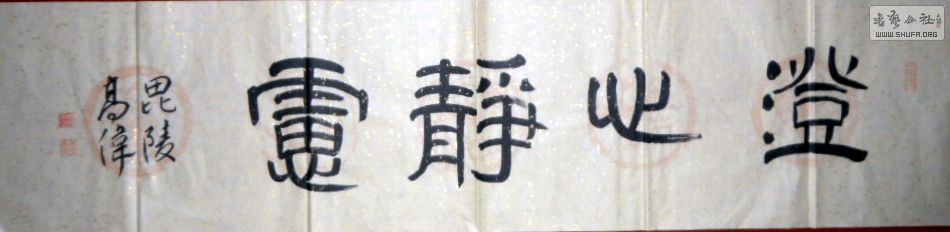 澄心靜慮
毘陵
高偉
書藝公社
WWW.SHUFA.ORG